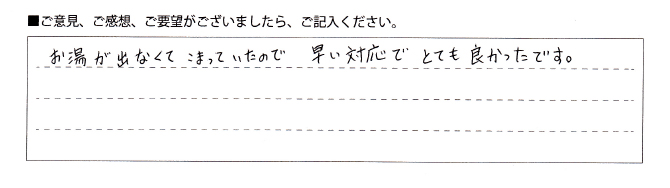 ■ご意見、ご感想、ご要望がございましたら、ご記入ください。
お湯が出なくてこまっていたので 早い対応でとても良かったです。